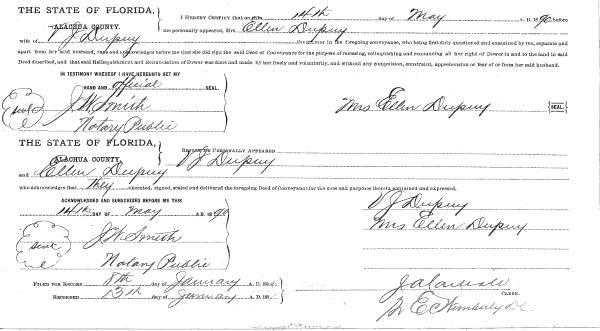 THE STATE OF FLORIDA,
ALACHUA COUNTY.
I HEREBY CERTIFY that on this 14th day of May A. D. 1890 before
me personally appeared, Mrs Ellen Dupuy
wife of V J Dupuy the grantor in the foregoing conveyance, who being first duly questioned and examined by me, separate and
apart from her said husband, came and acknowledged before me that she did sign the said Deed of Conveyance for the purpose of releasing, relinquishing and renouncing all her right of Dower in and to the land in said
Deed described, and that said Relinquishment and Renunciation of Dower was done and made by her freely and voluntarily, and without any compulsion, constraint, apprehension or fear of or from her said husband.
IN TESTIMONY WHEREOF I HAVE HEREUNTO SET MY
HAND AND official SEAL.
Seal J. W. Smith
Notary Public
Mrs Ellen Dupuy {SEAL.}
THE STATE OF FLORIDA,
ALACHUA COUNTY.
BEFORE ME PERSONALLY APPEARED V J Dupuy
and Ellen Dupuy
who acknowledges that they executed, signed, sealed and delivered the foregoing Deed of Conveyance for the uses and purposes therein contained and expressed.
ACKNOWLEDGED AND SUBSCRIBED BEFORE ME THIS
14th DAY OF May A. D. 1890
V J Dupuy
Mrs Ellen Dupuy
Seal J. W. Smith
Notary Public
FILED FOR RECORD 8th day of January A. D. 1891
RECORDED 13th day of January A. D. 1891
J A Carlisle
CLERK.